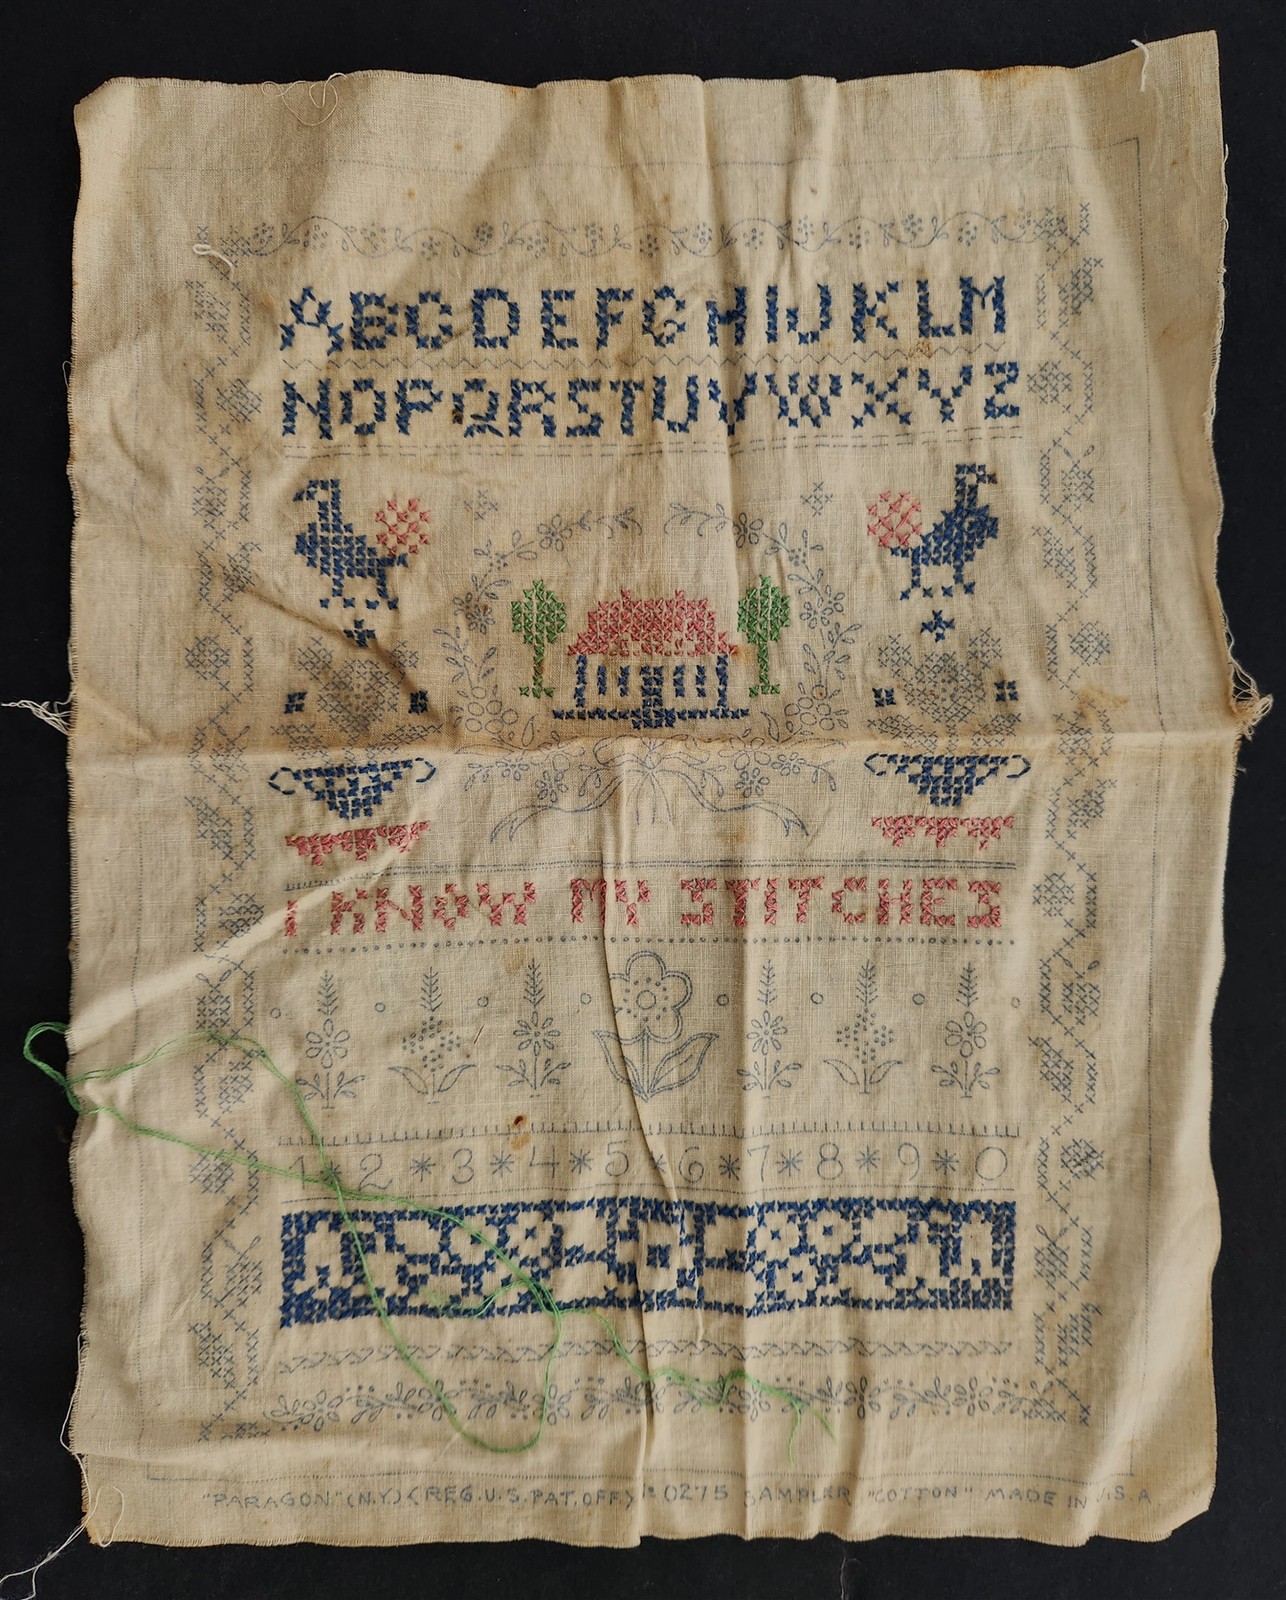 ABCDEFGHIJKLM
NOPQRSTUVWXYZ
I KNOW MY STITCHES
1*2*3*4*5*6*7*8*9*0
"PARAGON" (N.Y.) (REG. U.S. PAT. OFF.) 0275 SAMPLER "COTTON" MADE IN U.S.A